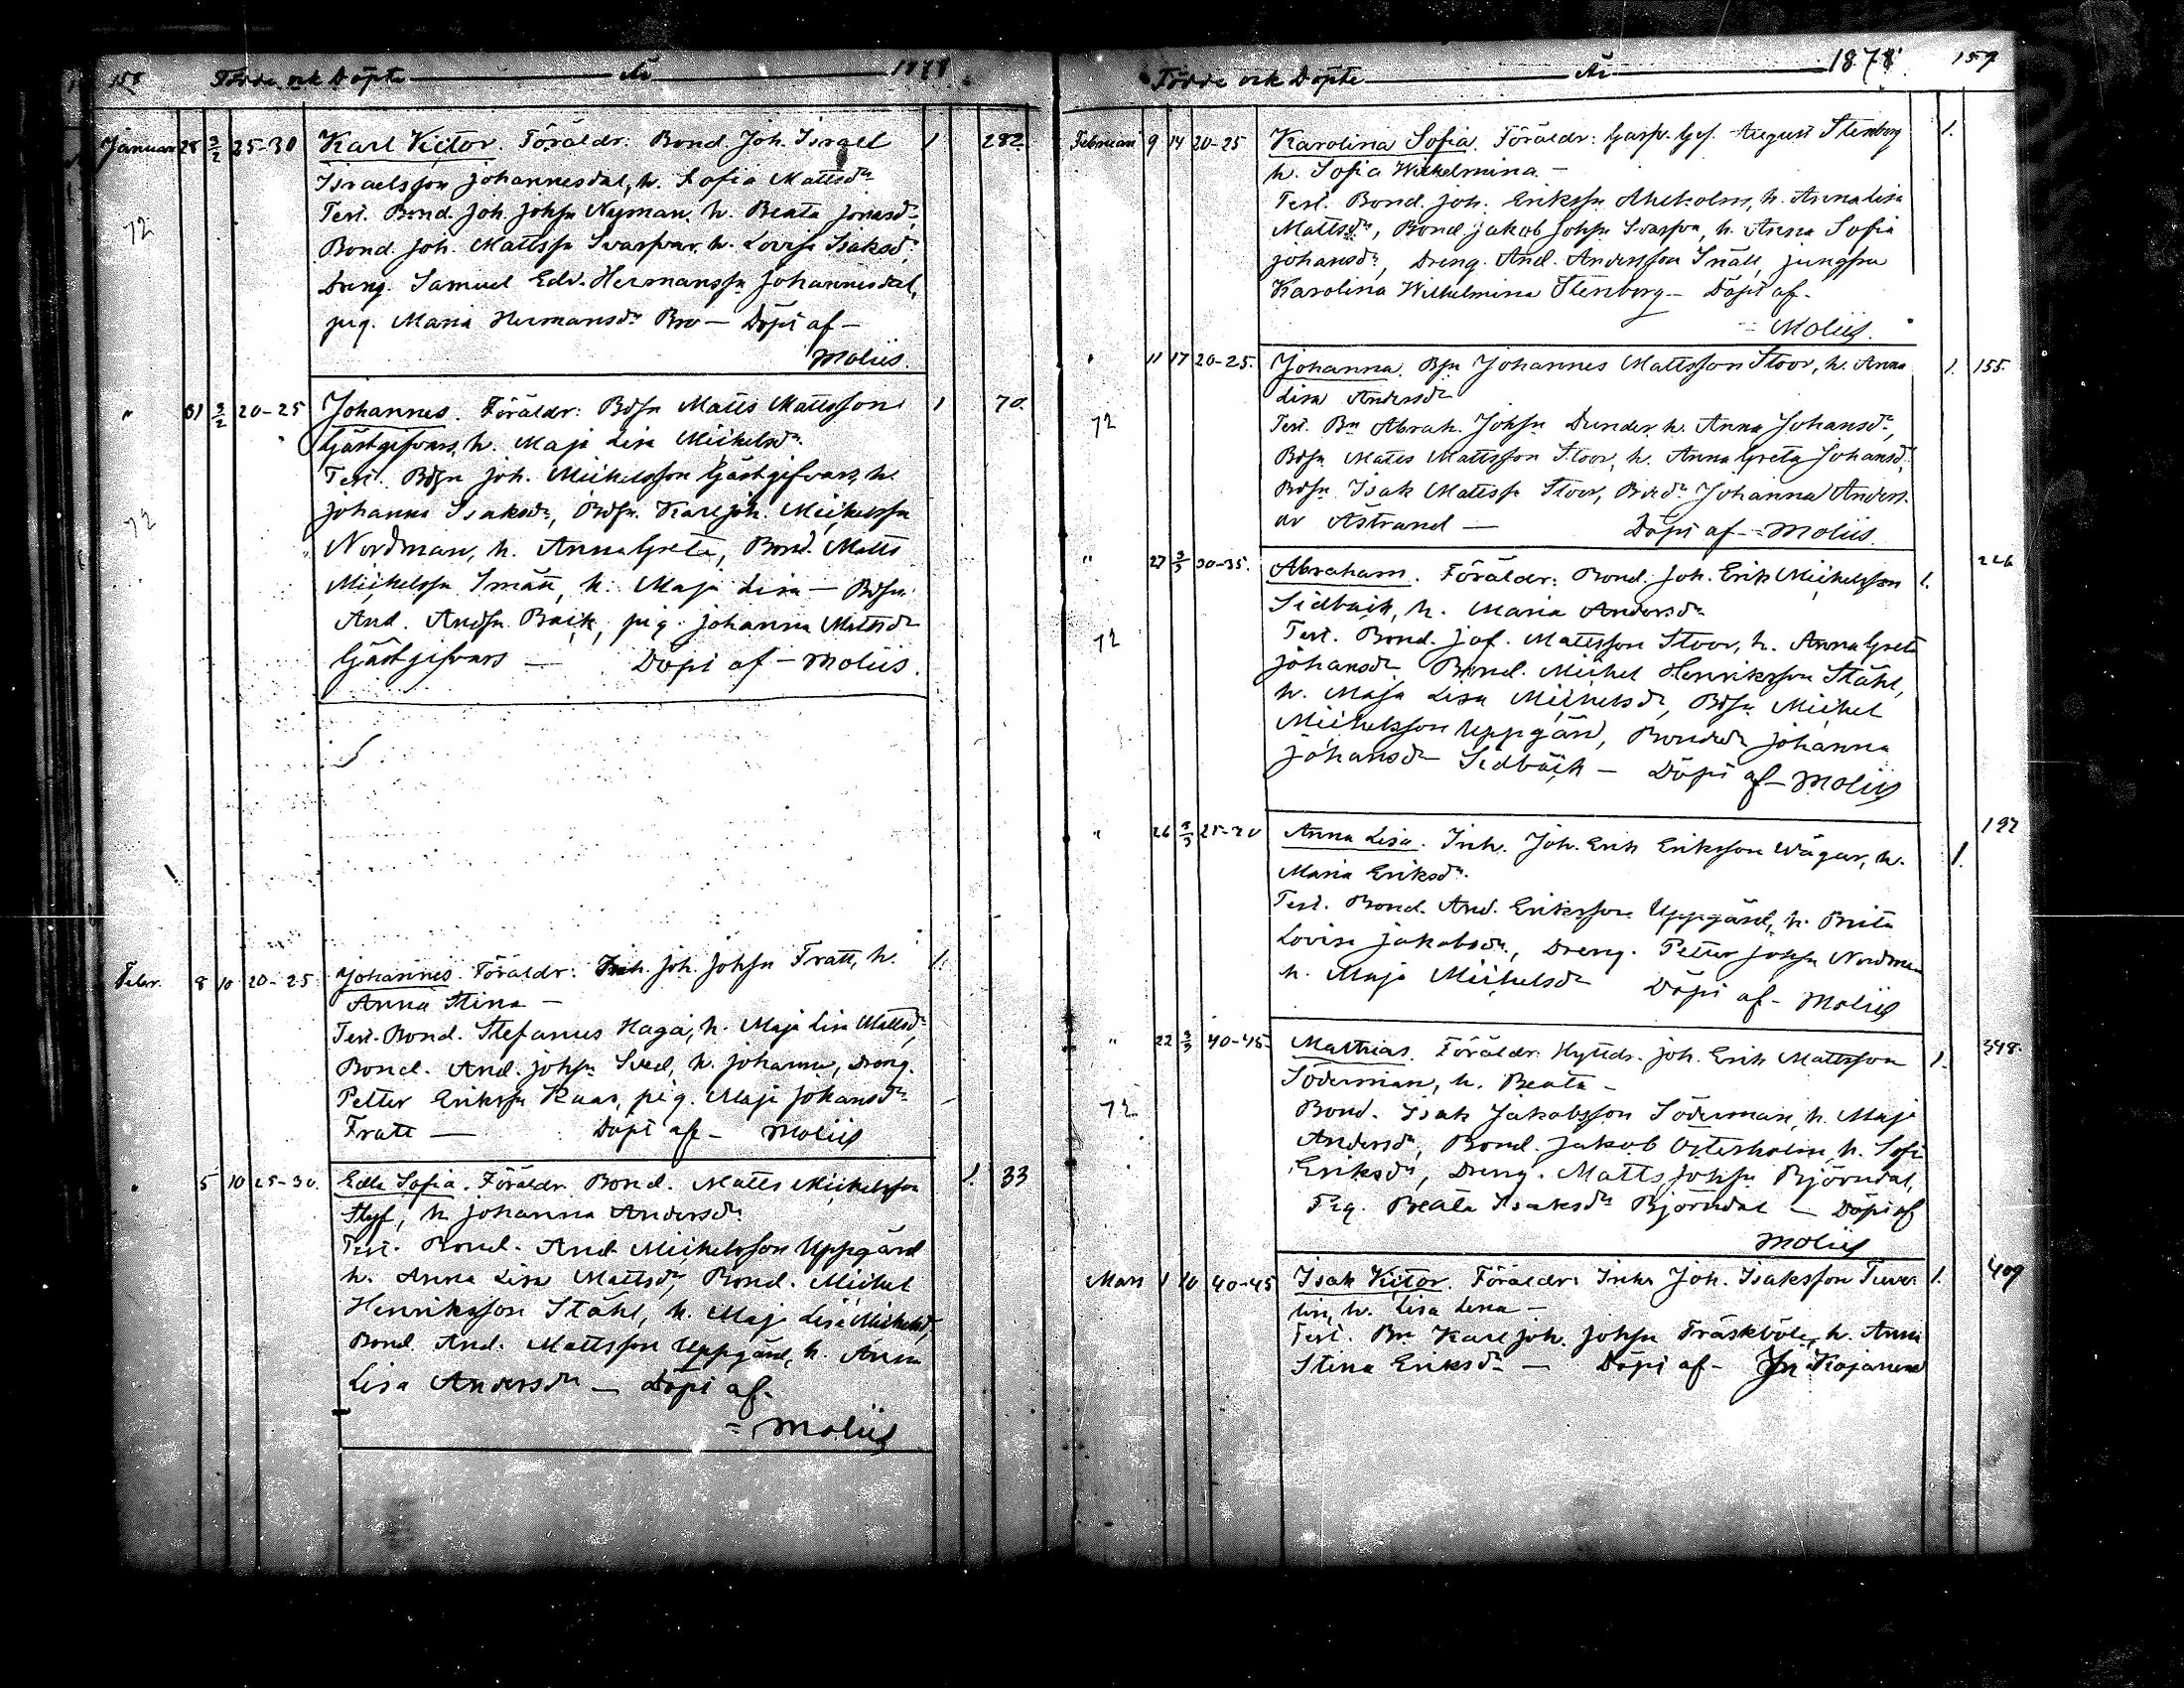 158 Födde och Döpte År 1878
Januari 28 3/2 25-30 Karl Victor. Föräldr. Bond. Joh. Israel 1 282
Israelsson Johannesdal, h. Sofia Mattsdr
Test. Bond. Joh. Johsn Nyman, h. Beata Jonasdr
72
Bond. Joh. Mattssn Svarfvar, h. Lovisa Isaksdr
Dreng. Samuel Edv. Hermanssn Johannesdal,
pig. Maria Hermansdr Bro — Döpt af —
Moliis.
" 31 3/2 20-25 Johannes. Föräldr: Bdsn Matts Mattsson 1 70.
Gästgifvars, h. Maja Lisa Michelsdr
Test. Bdsn Joh. Michelsson Gästgifvars, h.
72 Johanna Isaksdr, Bdsn. Karl Joh. Michelssn
Nordman, h. Anna Greta, Bond. Matts
Michelssn Smått, h. Maja Lisa — Bdsn
And. Andsn Back, pig. Johanna Mattsdr
Gästgifvars — Döpt af — Moliis.
Febr. 8 10 20-25 Johannes. Föräldr: Inh. Joh. Johsn Fratt, h. 1.
Anna Stina —
Test. Bond. Stefanus Haga, h. Maja Lisa Mattsdr,
Bond. And. Johsn Sved, h. Johanna, Dreng.
Petter Erikssn Kaas, pig. Maja Johansdr
Fratt — Döpt af — Moliis
" 5 10 25-30. Edla Sofia. Föräldr. Bond. Matts Michelsson 1. 33
Styf, h. Johanna Andersdr
Test. Bond. And. Michelsson Uppgård
h. Anna Lisa Mattsdr, Bond. Michel
Henriksson Ståhl, h. Maja Lisa Michelsdr,
Bond. And. Mattsson Uppgård, h. Anna
Lisa Andersdr — Döpt af.
= Moliis
Födde och Döpte År 1878 159
Februari 9 14 20-25 Karolina Sofia. Föräldr: August Stenberg 1.
h. Sofia Wilhelmina —
Test. Bond. Joh. Erikssn Ahlholm, h. Anna Lisa
Mattsdr, Bond. Jakob Johsn Svarfvar, h. Anna Sofia
Johansdr, Dreng. And. Andersson Snäll, jungfru
Karolina Wilhelmina Stenberg — Döpt af.
Moliis.
" 11 17 20-25. Johanna. Bsn Johannes Mattsson Stoor, h. Anna 1. 155.
Lisa Andersdr
72 Test. Bn Abrah. Johsn Dunder, h. Anna Johansdr,
Bdsn Matts Mattsson Stoor, h. Anna Greta Johansdr,
Bdsn Isak Mattssn Stoor, Bdr Johanna Anders-
dr Åstrand — Döpt af — Moliis.
" 27 3/3 30-35. Abraham. Föräldr: Bond. Joh. Erik Michelsson 1. 226
Sidbäck, h. Maria Andersdr
72 Test. Bond. Jof. Mattsson Stoor, h. Anna Greta
Johansdr, Bond. Michel Henriksson Ståhl,
h. Maja Lisa Michelsdr, Bdsn Michel
Michelsson Uppgård, Bondedr Johanna
Johansdr Sidbäck — Döpt af — Moliis
" 26 3/3 25-30 Anna Lisa. Inh. Joh. Erik Eriksson Wägar, h. 1. 192
Maria Eriksdr.
Test. Bond. And. Eriksson Uppgård, h. Brita
Lovisa Jakobsdr, Dreng. Petter Johsn Nordman
h. Maja Michelsdr Döpt af — Moliis
" 22 3/3 40-45. Mathias. Föräldr. Hyttdr. Joh. Erik Mattsson 1. 348.
Söderman, h. Beata —
72 Bond. Isak Jakobsson Söderman, h. Maja
Andersdr, Bond. Jakob Österholm, h. Sofi
Eriksdr, Dreng. Matts Johsn Björndal,
Pig. Beata Isaksdr Björndal — Döpt af
Moliis
Mars 1 10 40-45 Isak Victor. Föräldr: Inhs Joh. Isaksson Tuve- 1. 409
lin, h. Lisa Lena —
Test. Bn Karl Joh. Johsn Träskböle, h. Anna
Stina Eriksdr — Döpt af — Kajanus